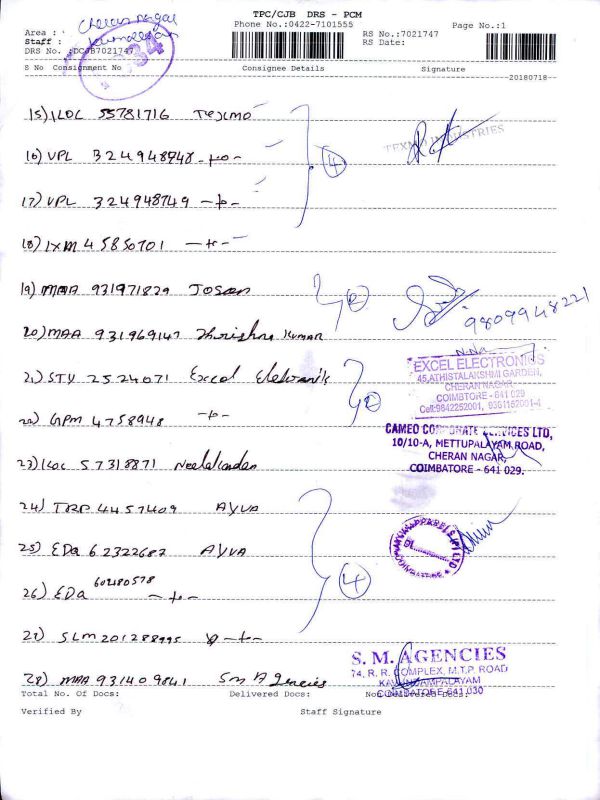 TPC/CJB DRS - PCM
Area : Cheran nagar
Phone No.:0422-7101555
Page No.:1
Staff :
RS No.:7021747
DRS No.:DCJB7021747
RS Date:
734
S No Consignment No Consignee Details Signature
20180718
15) ILOC 55781716 Texmo
TEXMO INDUSTRIES
16) VPL 324948748 -to-
4
17) VPL 324948749 -to-
18) IXM 45850701 -to-
19) MAA 931971829 Josan
2
9809948221
20) MAA 931969147 Kumar
21) STV 2524071 Excel Electronik
EXCEL ELECTRONICS
45,ATHISTALAKSHMI GARDEN,
CHERAN NAGAR,
COIMBATORE - 641 029
Cell:9842252001,
2
22) GPM 4758948 -to-
CAMEO CORPORATE SERVICES LTD,
10/10-A, METTUPALAYAM ROAD,
CHERAN NAGAR,
COIMBATORE - 641 029.
23) ILOC 57318871 Neelakandan
24) TRP 4457409 AYVA
25) EDa 62322682 AYVA
26) EDa 602180578 -to-
4
27) SLM 201288995 -to-
S. M. AGENCIES
74, R. R. COMPLEX, M.T.P. ROAD
KAVUNDAMPALAYAM
COIMBATORE-641 030
28) MAA 931409841 Sm Agencies
Total No. Of Docs: Delivered Docs: Non Delivered Docs:
Verified By Staff Signature